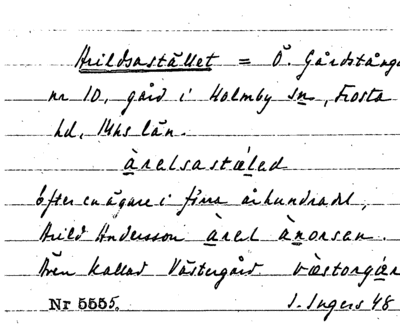 Arildsastället = Ö. Gårdstånga
nr 10, gård i Holmby sn, Frosta
hd, Mhs län.
àrelsastæled
Efter en ägare i förra århundradet,
Arild Andersson àrel ànorsen.
Även kallad Västergård væstorgår
Nr 5555. I. Ingers 48